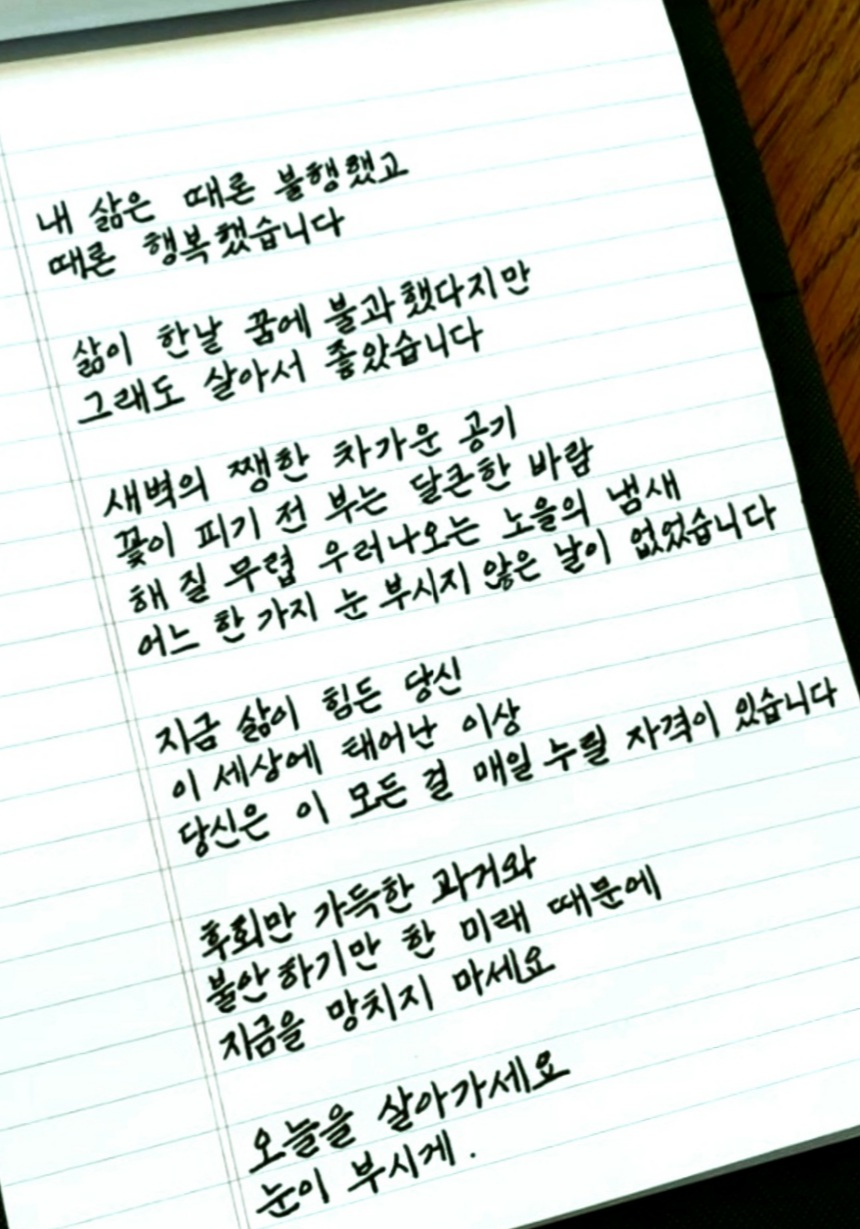 내 삶은 때론 불행했고
때론 행복했습니다
삶이 한낱 꿈에 불과했다지만
그래도 살아서 좋았습니다
새벽의 쨍한 차가운 공기
꽃이 피기 전 부는 달큰한 바람
해 질 무렵 우러나오는 노을의 냄새
어느 한 가지 눈 부시지 않은 날이 없었습니다
지금 삶이 힘든 당신
이 세상에 태어난 이상
당신은 이 모든 걸 매일 누릴 자격이 있습니다
후회만 가득한 과거와
불안하기만 한 미래 때문에
지금을 망치지 마세요
오늘을 살아가세요
눈이 부시게.